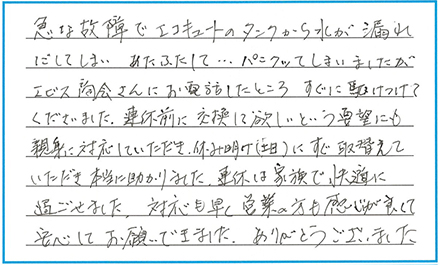 急な故障でエコキュートのタンクから水が漏れ
だしてしまい あたふたして…パニクってしまいましたが
エビス商会さんにお電話したところ すぐに駆けつけて
くださいました。連休前に交換して欲しいという要望にも
親身に対応していただき、休み明け(土日)にすぐ取替えて
いただき本当に助かりました。連休は家族で快適に
過ごせました。対応も早く営業の方も感じが良くて
安心してお願いできました。ありがとうございました